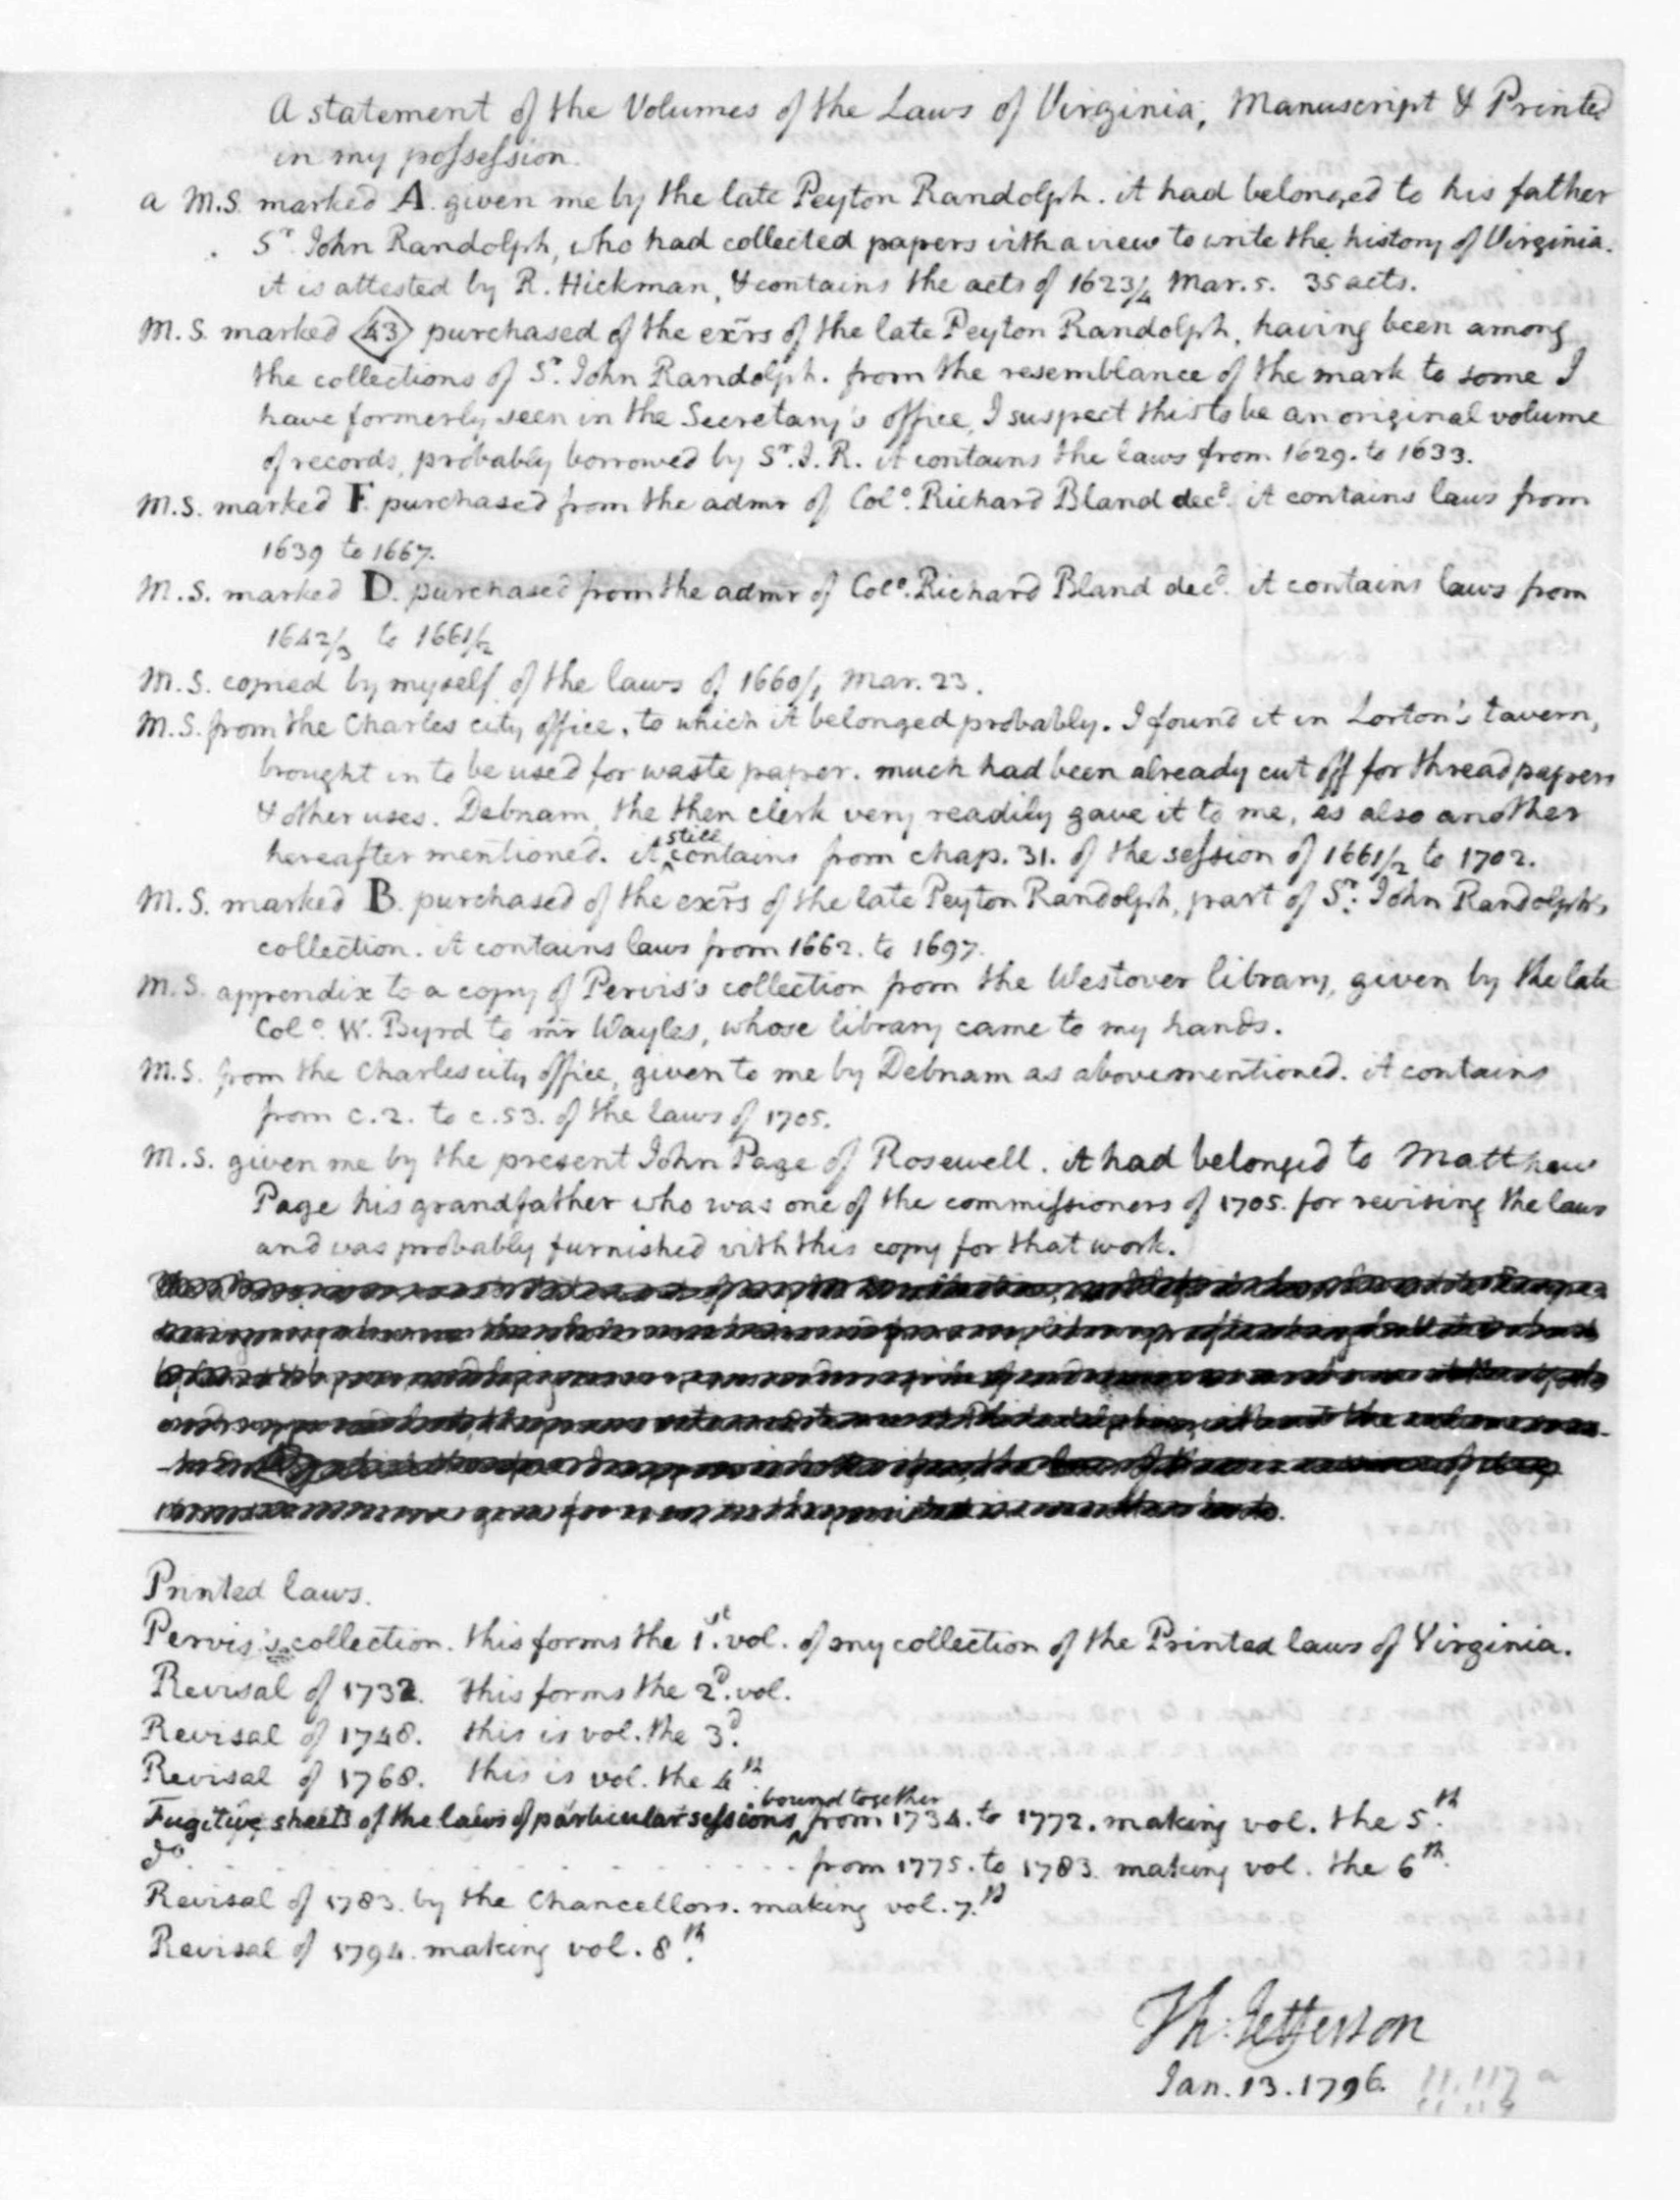 A statement of the Volumes of the Laws of Virginia, Manuscript & Printed
in my possession.
a M.S. marked A. given me by the late Peyton Randolph. it had belonged to his father
Sr. John Randolph, who had collected papers with a view to write the history of Virginia.
it is attested by R. Hickman, & contains the acts of 1623/4 Mar. 5. 35 acts.
M.S. marked 43 purchased of the exrs of the late Peyton Randolph, having been among
the collections of Sr. John Randolph. from the resemblance of the mark to some I
have formerly seen in the Secretary's office, I suspect this to be an original volume
of records, probably borrowed by Sr. J. R. it contains the laws from 1629. to 1633.
M.S. marked F. purchased from the admr of Colo. Richard Bland decd. it contains laws from
1639 to 1667.
M.S. marked D. purchased from the admr of Colo. Richard Bland decd. it contains laws from
1642/3 to 1661/2
M.S. copied by myself of the laws of 1660/1 Mar. 23.
M.S. from the Charles city office, to which it belonged probably. I found it in Lorton's tavern,
brought in to be used for waste paper. much had been already cut off for thread papers
& other uses. Debnam, the then clerk very readily gave it to me, as also another
hereafter mentioned. it still contains from chap. 31. of the session of 1661/2 to 1702.
M.S. marked B. purchased of the exrs of the late Peyton Randolph, part of Sr. John Randolph's
collection. it contains laws from 1662. to 1697.
M.S. appendix to a copy of Pervis's collection from the Westover library, given by the late
Colo. W. Byrd to mr Wayles, whose library came to my hands.
M.S. from the Charles city office, given to me by Debnam as abovementioned. it contains
from c. 2. to c. 53. of the laws of 1705.
M.S. given me by the present John Page of Rosewell. it had belonged to Matthew
Page his grandfather who was one of the commissioners of 1705. for revising the laws
and was probably furnished with this copy for that work.
Printed laws.
Pervis's collection. this forms the 1st. vol. of my collection of the Printed laws of Virginia.
Revisal of 1732. this forms the 2d. vol.
Revisal of 1748. this is vol. the 3d.
Revisal of 1768. this is vol. the 4th.
Fugitive sheets of the laws of particular sessions bound together from 1734. to 1772. making vol. the 5th.
do. . . . . . . from 1775. to 1783. making vol. the 6th.
Revisal of 1783. by the Chancellors. making vol. 7th.
Revisal of 1794. making vol. 8th.
Th: Jefferson
Jan. 13. 1796.